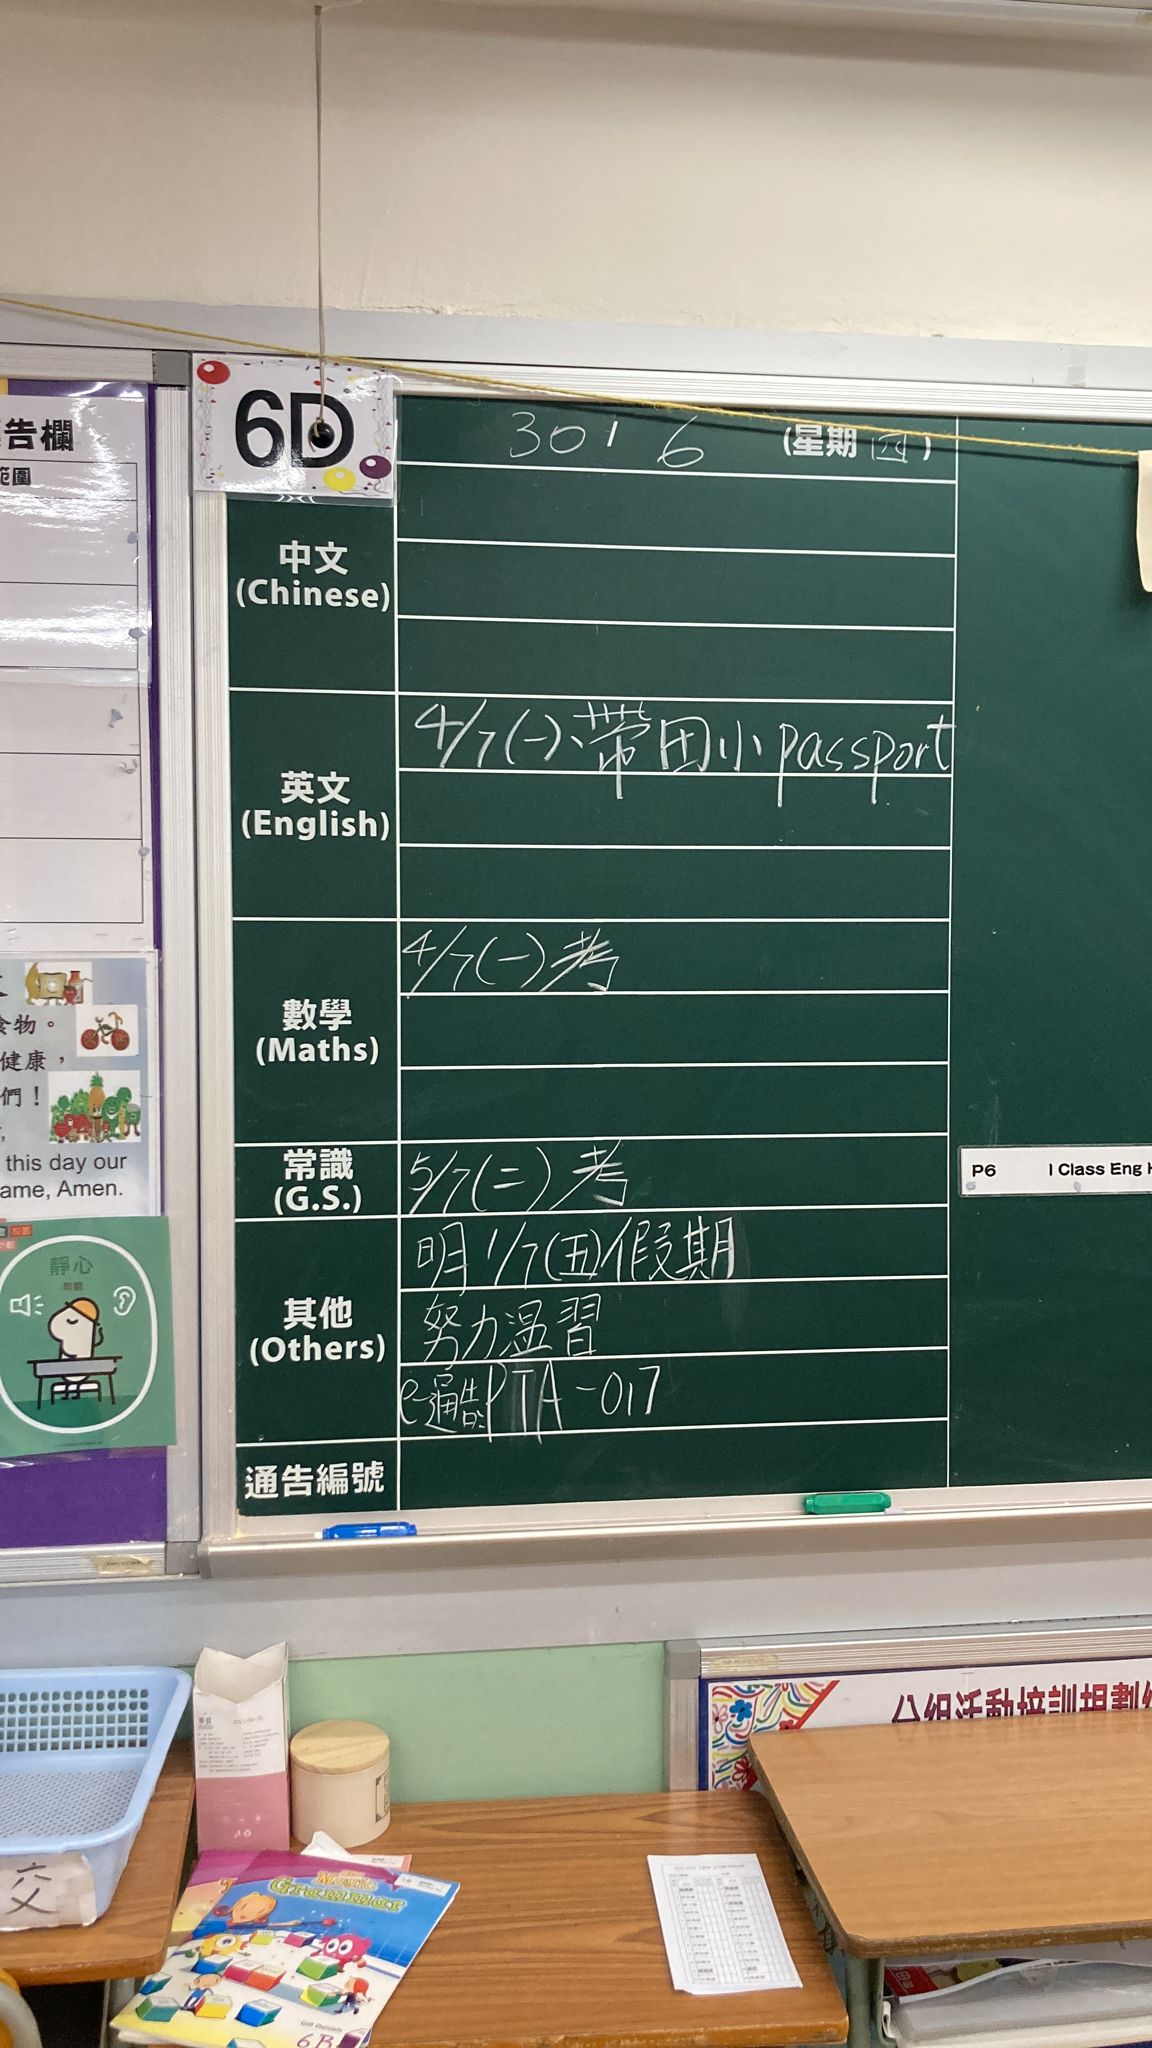 告欄
範圍
6D
30 / 6 (星期 四)
中文
(Chinese)
英文
(English)
4/7(一)、帶田小passport
數學
(Maths)
4/7(一)考
常識
(G.S.)
5/7(二)考
其他
(Others)
明1/7(五)假期
努力温習
e-通告:PTA-017
通告編號
P6 I Class Eng H
食物。
健康，
們！
this day our
ame, Amen.
靜心
分組活動培訓規劃
交
Magic
Grammar
Gill Daniels
6B